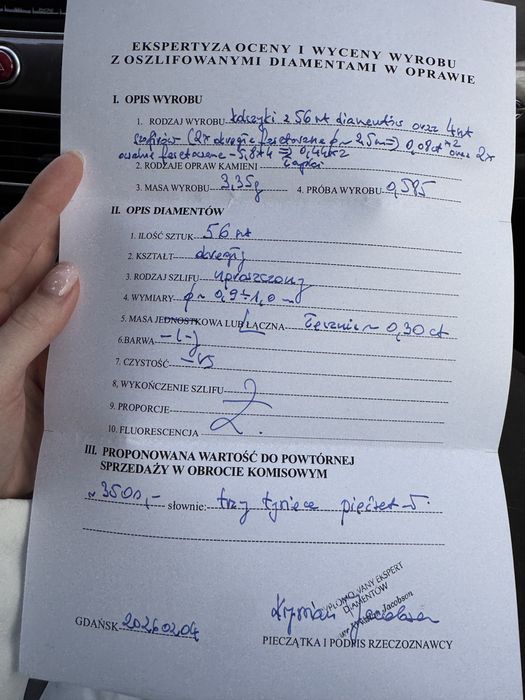 EKSPERTYZA OCENY I WYCENY WYROBU
Z OSZLIFOWANYMI DIAMENTAMI W OPRAWIE
I. OPIS WYROBU
1. RODZAJ WYROBU kolczyki z 56 szt diamentów oraz 4 szt
szafirów (2x okrągłe fasetowane ϕ ~ 2,5 m => 0,08ct x2 oraz 2x
owalne fasetowane ~ 5,8x4 => 0,44x2
2. RODZAJE OPRAW KAMIENI łapki
3. MASA WYROBU 3,35g 4. PRÓBA WYROBU 0,585
II. OPIS DIAMENTÓW
1. ILOŚĆ SZTUK 56 szt
2. KSZTAŁT okrągły
3. RODZAJ SZLIFU uproszczony
4. WYMIARY ϕ ~ 0,9÷1,0 m
5. MASA JEDNOSTKOWA LUB ŁĄCZNA Łącznie ~ 0,30 ct
6.BARWA
7. CZYSTOŚĆ
8. WYKOŃCZENIE SZLIFU
9. PROPORCJE
10. FLUORESCENCJA
III. PROPONOWANA WARTOŚĆ DO POWTÓRNEJ
SPRZEDAŻY W OBROCIE KOMISOWYM
~ 3500,- słownie: trzy tysiące pięćset
DYPLOMOWANY EKSPERT
DIAMENTÓW
Jacobson
GDAŃSK 20260204
PIECZĄTKA I PODPIS RZECZOZNAWCY